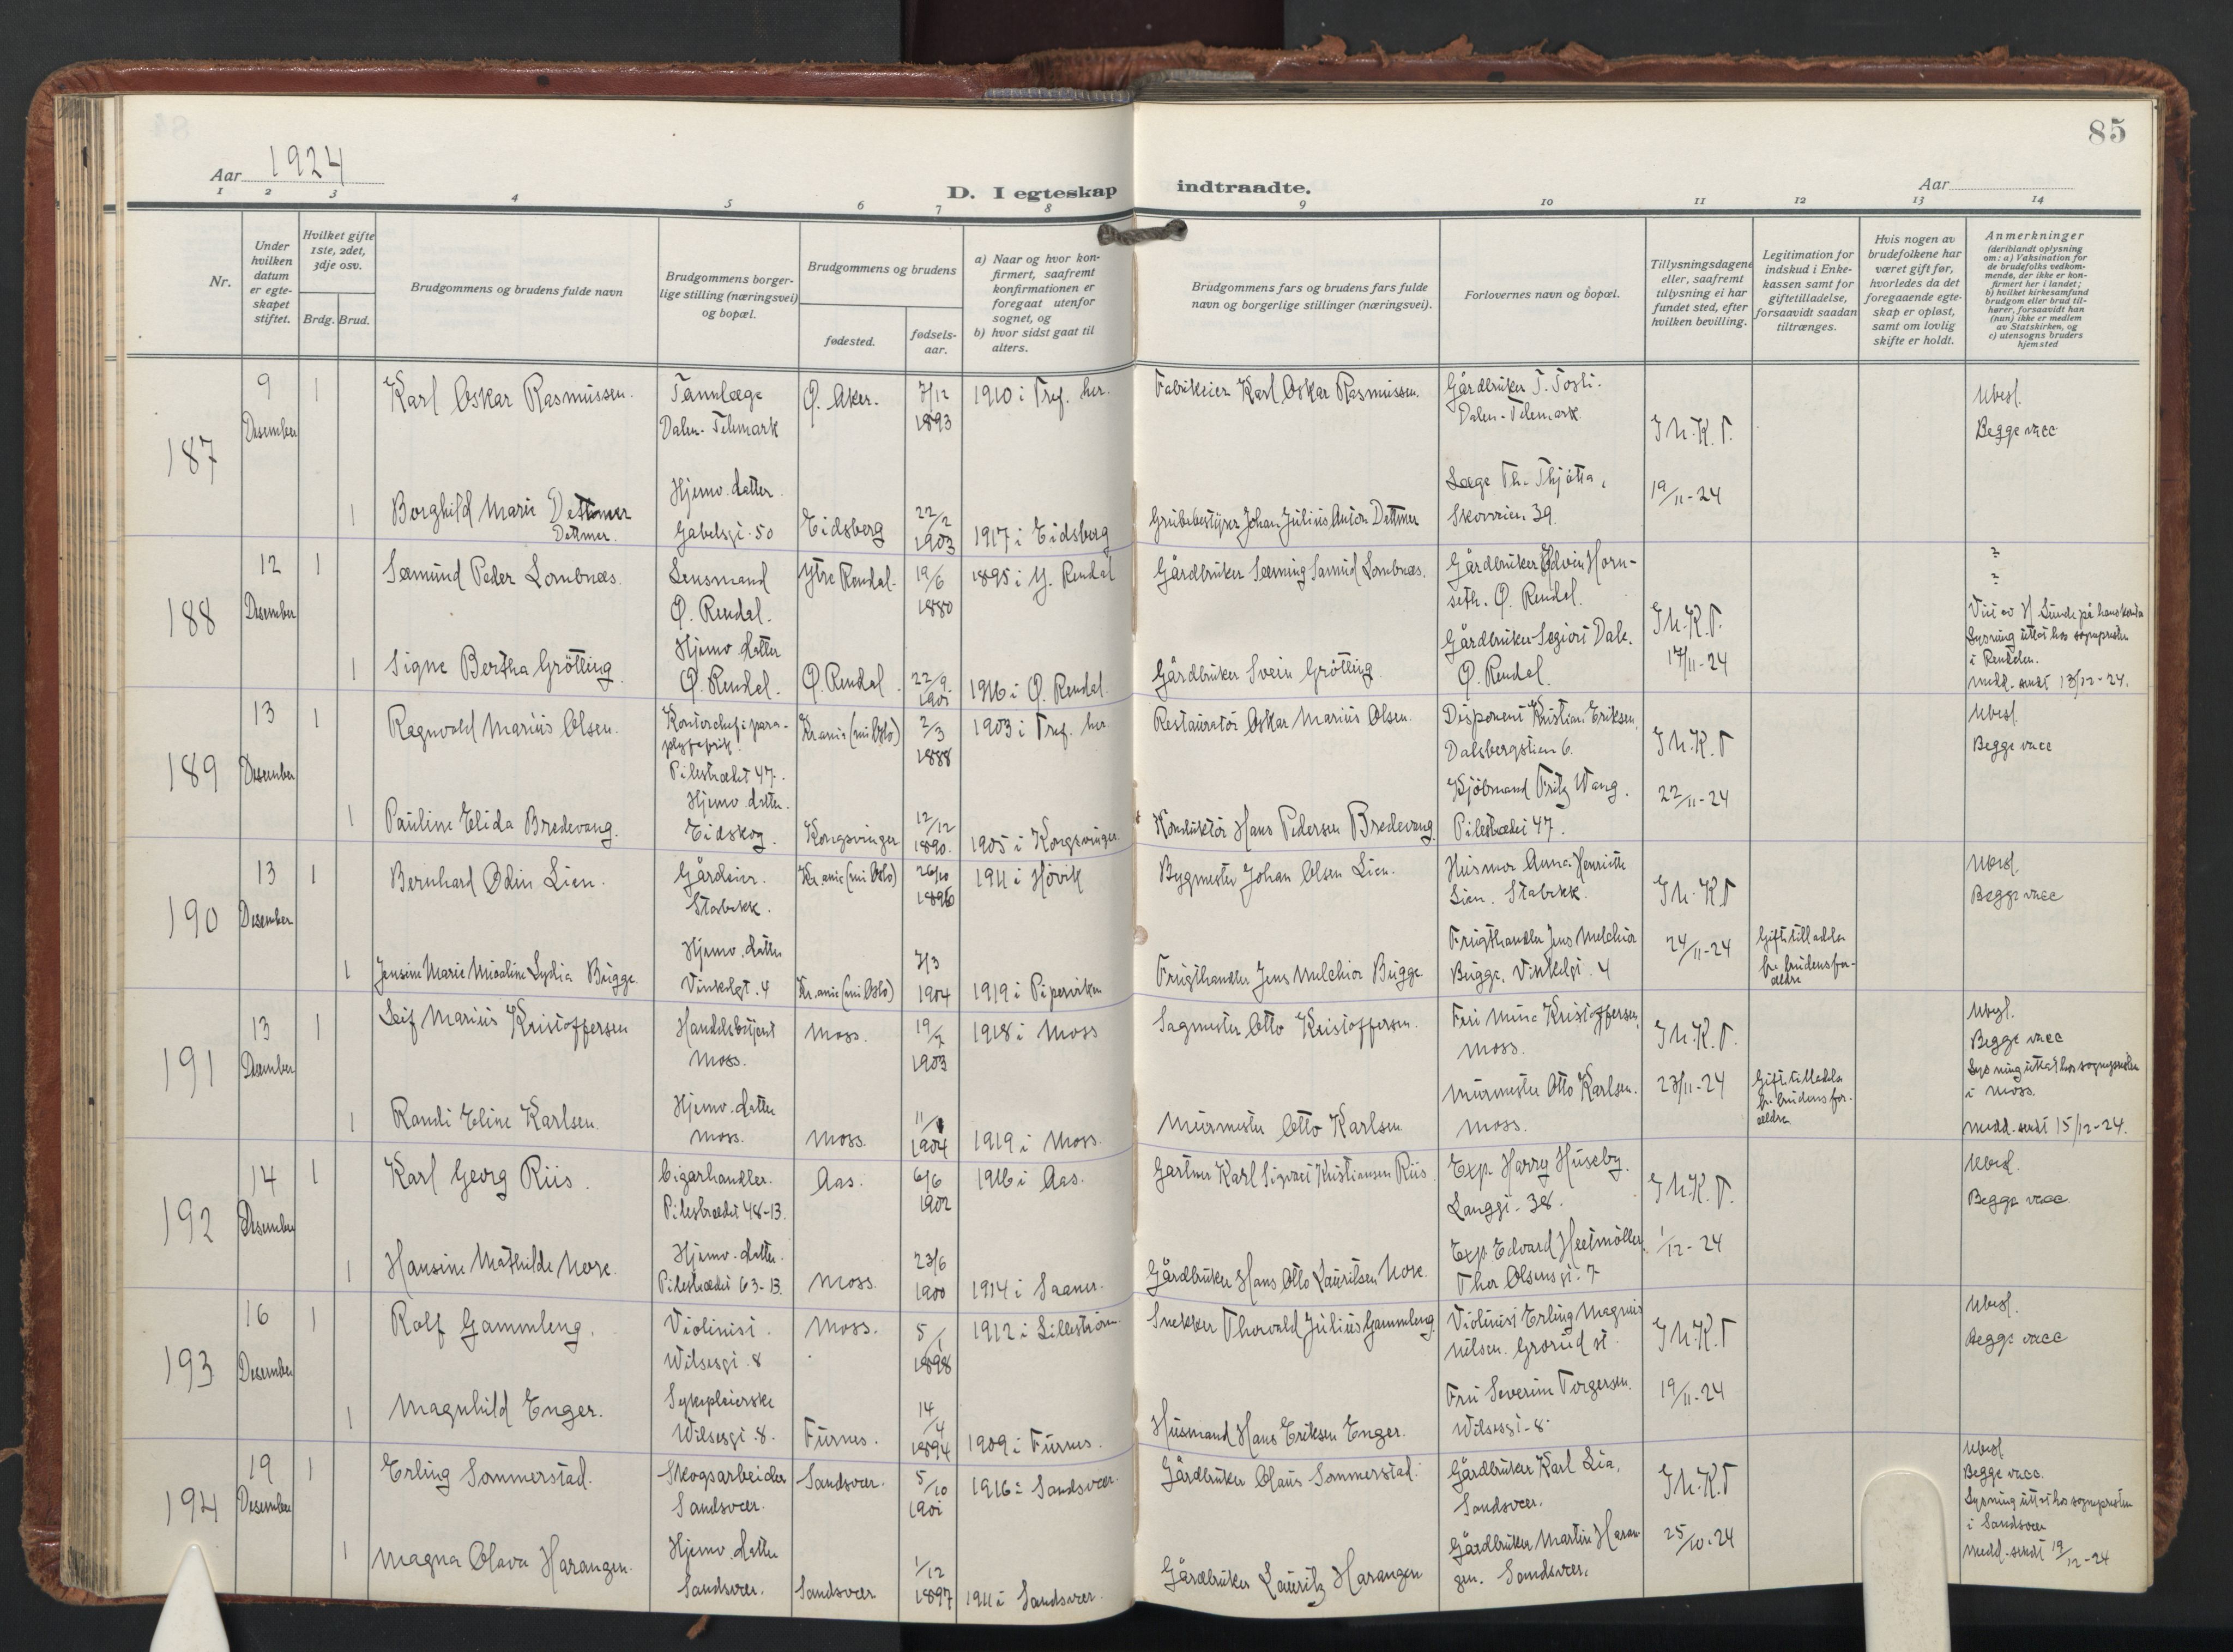 85
Aar 1924
D. I egteskap indtraadte.
Aar
1 2 3 4 5 6 7 8 9 10 11 12 13 14
Nr.
Under hvilken datum er egte-skapet stiftet.
Hvilket gifte 1ste, 2det, 3dje osv.
Brdg. Brud.
Brudgommens og brudens fulde navn
Brudgommens borger-lige stilling (næringsvei) og bopæl.
Brudgommens og brudens
fødested.
fødsels-aar.
a) Naar og hvor kon-firmert, saafremt konfirmationen er foregaat utenfor sognet, og
b) hvor sidst gaat til alters.
Brudgommens fars og brudens fars fulde navn og borgerlige stillinger (næringsvei).
Forlovernes navn og bopæl.
Tillysningsdagene eller, saafremt tillysning ei har fundet sted, efter hvilken bevilling.
Legitimation for indskud i Enke-kassen samt for giftetilladelse, forsaavidt saadan tiltrænges.
Hvis nogen av brudefolkene har været gift før, hvorledes da det foregaaende egte-skap er opløst, samt om lovlig skifte er holdt.
Anmerkninger
(deriblandt oplysning om: a) Vaksination for de brudefolks vedkom-mende, der ikke er kon-firmert her i landet; b) hvilket kirkesamfund brudgom eller brud til-hører, forsaavidt han (hun) ikke er medlem av Statskirken, og c) utensogns bruders hjemsted
187
9 Desember 1
Karl Oskar Rasmussen.
Tannlæge
Dalen-Telemark
Ø. Aker.
7/12 1893
1910 i Tref. her.
Fabrikeier Karl Oskar Rasmussen.
Gårdbruker T. Tosli.
Dalen-Telemark
Ubesl.
Begge vacc
1
Borghild Marie Dettmer
Dettmer.
Hjemv. datter.
Gabelsgt. 50
Eidsberg
22/2 1903
1917 i Eidsberg
Grubebestyrer Johan Julius Anton Dettmer
Læge Th. Thjøtta,
Skovveien 39.
19/11-24
188
12 Desember 1
Sæmund Peder Lombnæs.
Lensmand
Ø. Rendal.
Ytre Rendal.
19/6 1880
1895 i Y. Rendal
Gårdbruker Sæming Lombnæs.
Gårdbruker Edvin Horn-
seth. Ø. Rendal.
?
?
Lysning uttat hos sognepresten
i Rendalen.
Medd. sendt 13/12-24.
1
Signe Bertha Grøtting
Hjemv. datter
Ø. Rendal.
Ø. Rendal.
22/9 1901
1916 i Ø. Rendal.
Gårdbruker Svein Grøtting
Gårdbruker Dale.
Ø. Rendal.
17/11-24
189
13 Desember 1
Ragnvald Marius Olsen.
Kontorchef i para-
plyfabrik.
Pilestrædet 47.
Kr.ania (nu Oslo)
2/3 1888
1903 i Tref. her
Restauratør Oskar Marius Olsen.
Disponent Kristian Eriksen
Dalsbergstien 6.
Ubesl.
Begge vacc
1
Pauline Elida Bredevang.
Hjemv. datter.
Eidskog.
Kongsvinger
12/12 1890.
1905 i Kongsvinger
Konduktør Hans Pedersen Bredevang.
Kjøbmand Fritz Wang.
Pilestrædet 47.
22/11-24
190
13 Desember 1
Bernhard Odin Lien.
Gårdeier.
Stabekk.
Kr.ania (nu Oslo)
26/10 1896
1911 i Høvik
Bygmester Johan Olsen Lien.
Husmor Anna Henriette
Lien. Stabekk.
Ubesl.
Begge vacc
1
Jensine Marie Nicoline Lydia Bugge
Hjemv. datter
Vinkelgt. 4
Kr.ania (nu Oslo)
7/3 1904
1919 i Pipervirken
Frugthandler Jens Melchior Bugge.
Frugthandler Jens Melchior
Bugge, Vinkelgt. 4
24/11-24
Giftetilladelse
fr. brudens for-
ældre
191
13 Desember 1
Leif Marius Kristoffersen
Handelsbetjent
Moss.
Moss.
19/7 1903
1918 i Moss
Sagmester Otto Kristoffersen.
Fru Mina Kristoffersen,
Moss.
Ubesl.
Begge vacc
Lysning uttat hos sognepresten
i Moss.
Medd. sendt 15/12-24.
1
Randi Eline Karlsen.
Hjemv. datter
Moss.
Moss.
1904
1919 i Moss.
Murmester Otto Karlsen
Murmester Otto Karlsen.
Moss.
23/11-24
Giftetilladelse
fr. brudens for-
ældre
192
14 Desember 1
Karl Georg Riis.
Cigarhandler.
Pilestrædet 48-13.
Aas.
6/6 1902
1916 i Aas.
Gartner Karl Sigvart Kristiansen Riis
Exp. Harry Huseby.
Langgt. 38.
Ubesl.
Begge vacc
1
Hansine Mathilde Nore.
Hjemv. datter.
Pilestrædet 63-13.
Moss.
23/6 1900
1914 i Saaner.
Gårdbruker Hans Otto Lauritsen Nore.
Exp. Edvard Heitmøller,
Thor Olsens gt. 7
1/12-24
193
16 Desember 1
Rolf Gammleng.
Violinist.
Wilsesgt. 8
Moss.
5/1 1898
1912 i Lillestrøm
Snekker Thorvald Julius Gammleng.
Violinist Erling Magnus
Nilsen. Grorud st.
Ubesl.
Begge vacc
1
Magnhild Enger.
Sykepleierske
Wilsesgt. 8.
Furnes.
14/4 1894
1909 i Furnes.
Husmand Hans Eriksen Enger.
Fru Severine Torgersen.
Wilsesgt. 8.
19/11-24
194
19 Desember 1
Erling Sommerstad.
Skogsarbeider
Sandsvær.
Sandsvær.
5/10 1901
1916 i Sandsvær.
Gårdbruker Olaus Sommerstad.
Gårdbruker Karl Lia,
Sandsvær.
Ubesl.
Begge vacc.
Lysning uttat hos sognepresten
i Sandsvær
Medd. sendt 19/12-24
1
Magna Olava Harangen.
Hjemv. datter
Sandsvær.
Sandsvær
1/12 1897
1911 i Sandsvær.
Gårdbruker Lauritz Harangen
Gårdbruker Martin Haran-
gen. Sandsvær.
25/10-24